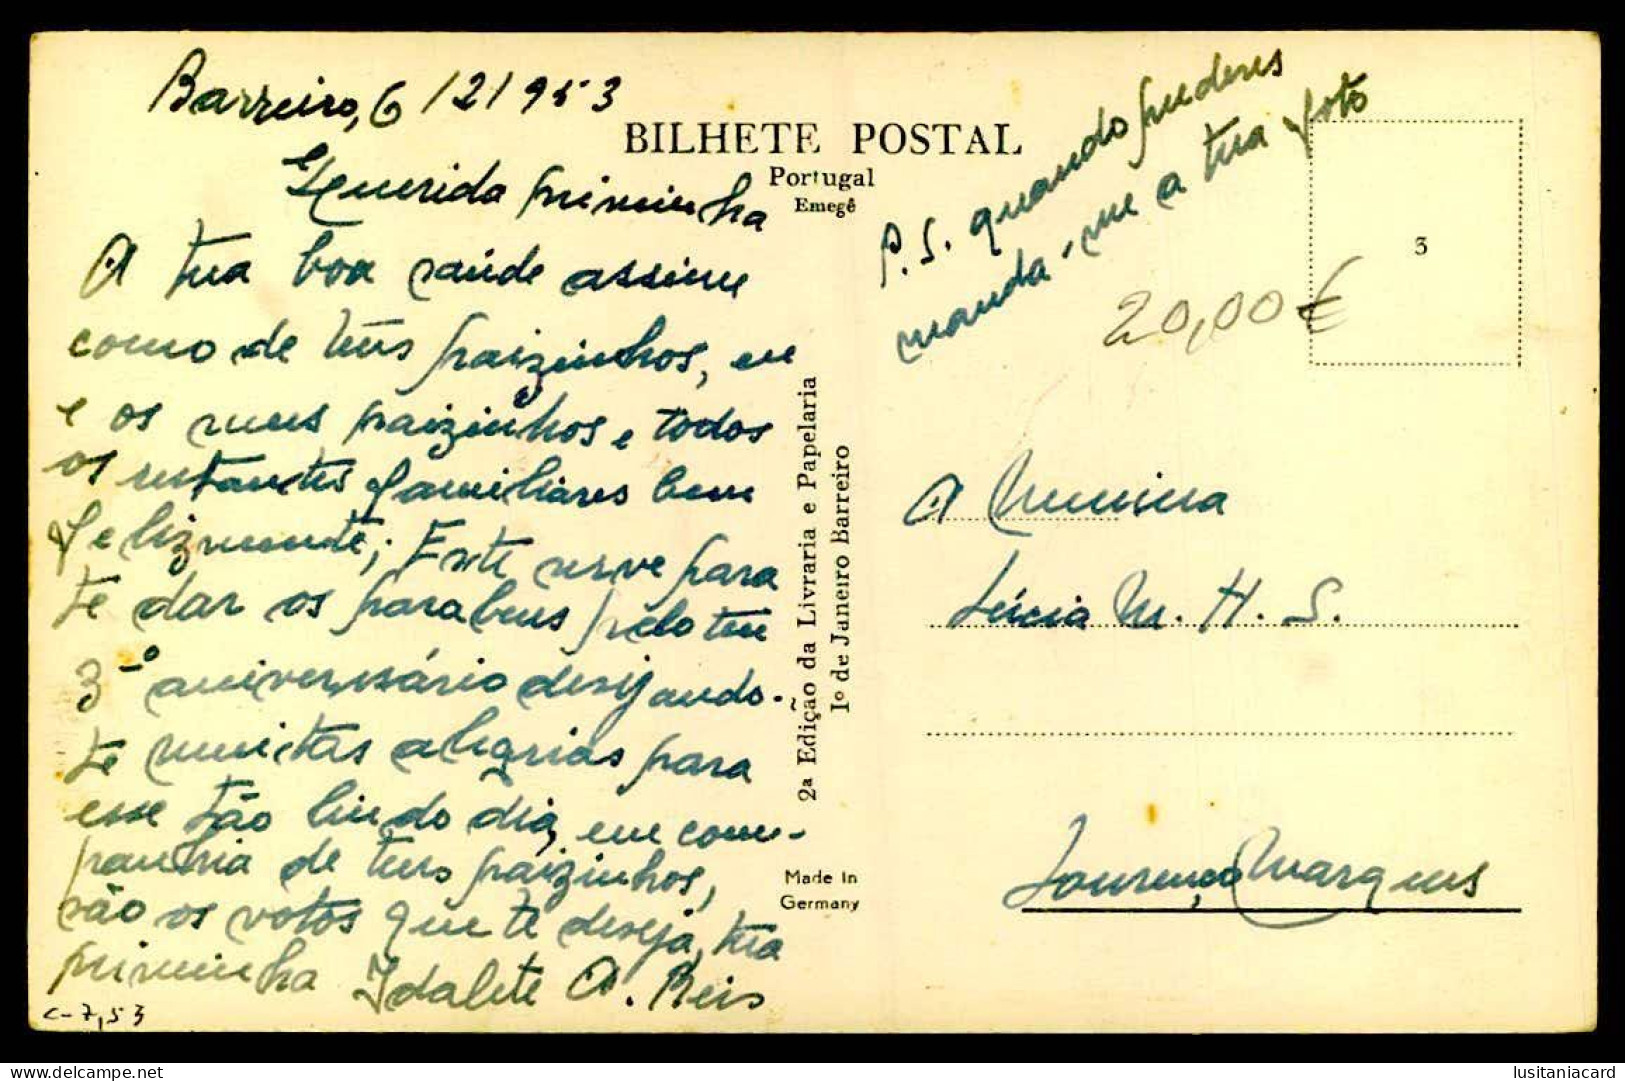 Barreiro, 6 / 2 / 953
Querida priminha
A tua boa saúde assim
como de teus paizinhos, eu
e os meus paizinhos e todos
os restantes familiares bem
felizmente; Este serve para
te dar os parabens pelo teu
3º aniversário desejando-
te muitas alegrias para
esse tão lindo dia, em com-
panhia de teus paizinhos,
são os votos que te deseja, tua
priminha Idalete A. Reis
c-7,53
BILHETE POSTAL
Portugal
Emegê
2ª Edição da Livraria e Papelaria
1º de Janeiro Barreiro
Made In
Germany
P.S. quando puderes
manda-me a tua foto
3
20,00€
A Menina
Lúcia M. H. S.
Lourenço Marques
delcampe.net
lusitaniacard